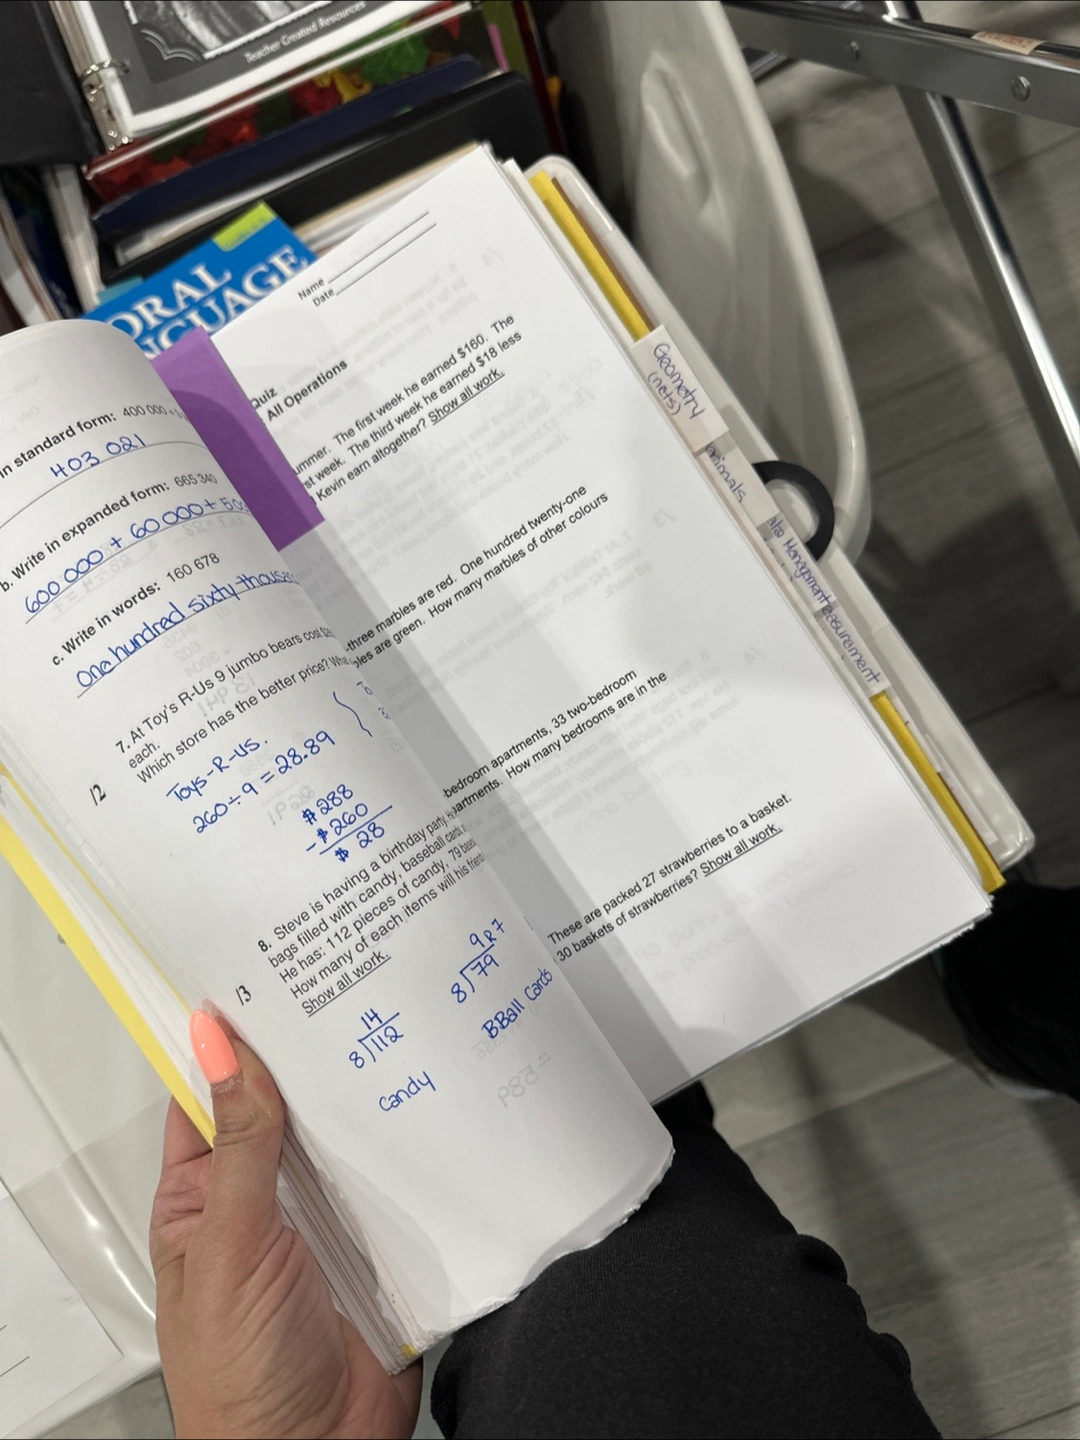 Teacher Created Resources
ORAL
NGUAGE
in standard form: 400 000 +
403 021
b. Write in expanded form: 665 340
600 000 + 60 000 + 500
c. Write in words: 160 678
One hundred sixty thousan
12
7. At Toy's R-Us 9 jumbo bears cost
each.
Which store has the better price?
Toys-R-us.
260 ÷ 9 = 28.89
$288
- $260
$ 28
13
8. Steve is having a birthday party.
bags filled with candy, baseball cards
He has: 112 pieces of candy, 79
How many of each items will his friend
Show all work.
14
8)112
candy
9 R7
8)79
BBall Cards
Name
Date
Quiz
All Operations
ummer. The first week he earned $160. The
st week. The third week he earned $18 less
Kevin earn altogether? Show all work.
-three marbles are red. One hundred twenty-one
les are green. How many marbles of other colours
bedroom apartments, 33 two-bedroom
artments. How many bedrooms are in the
These are packed 27 strawberries to a basket.
30 baskets of strawberries? Show all work.
Geometry
(nets)
nimals
Management
easurement